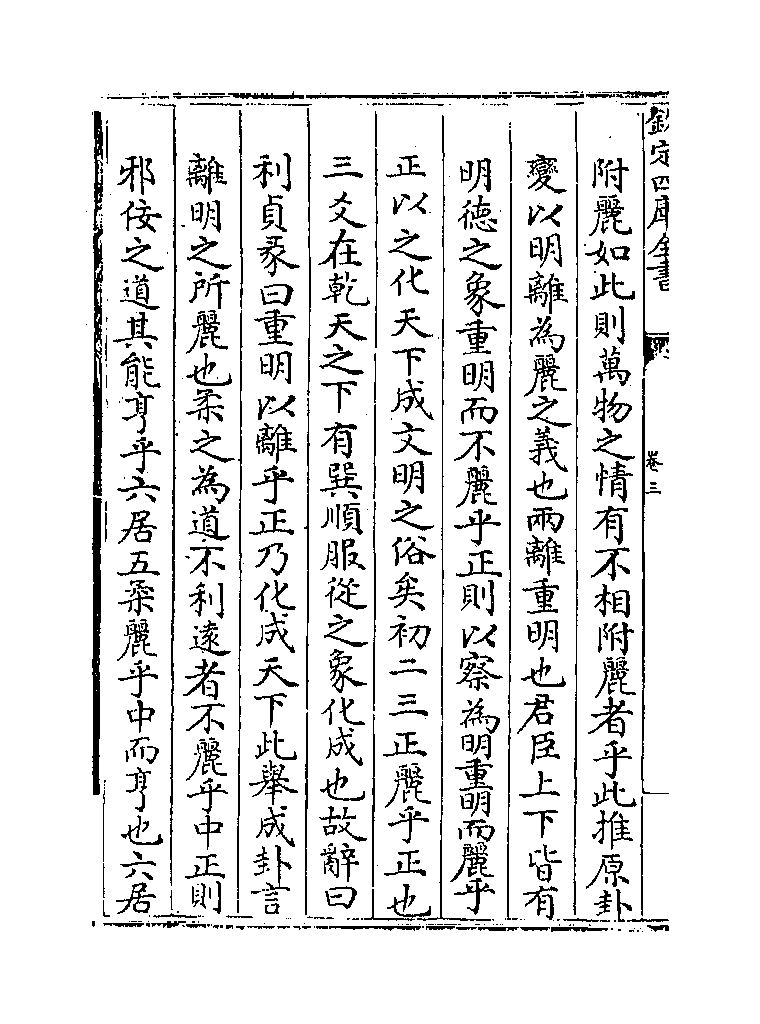 欽定四庫全書
卷三
附麗如此則萬物之情有不相附麗者乎此推原卦
變以明離為麗之義也兩離重明也君臣上下皆有
明德之象重明而不麗乎正則以察為明重明而麗乎
正以之化天下成文明之俗矣初二三正麗乎正也
三爻在乾天之下有巽順服從之象化成也故辭曰
利貞彖曰重明以離乎正乃化成天下此舉成卦言
離明之所麗也柔之為道不利遠者不麗乎中正則
邪佞之道其能亨乎六居五柔麗乎中而亨也六居